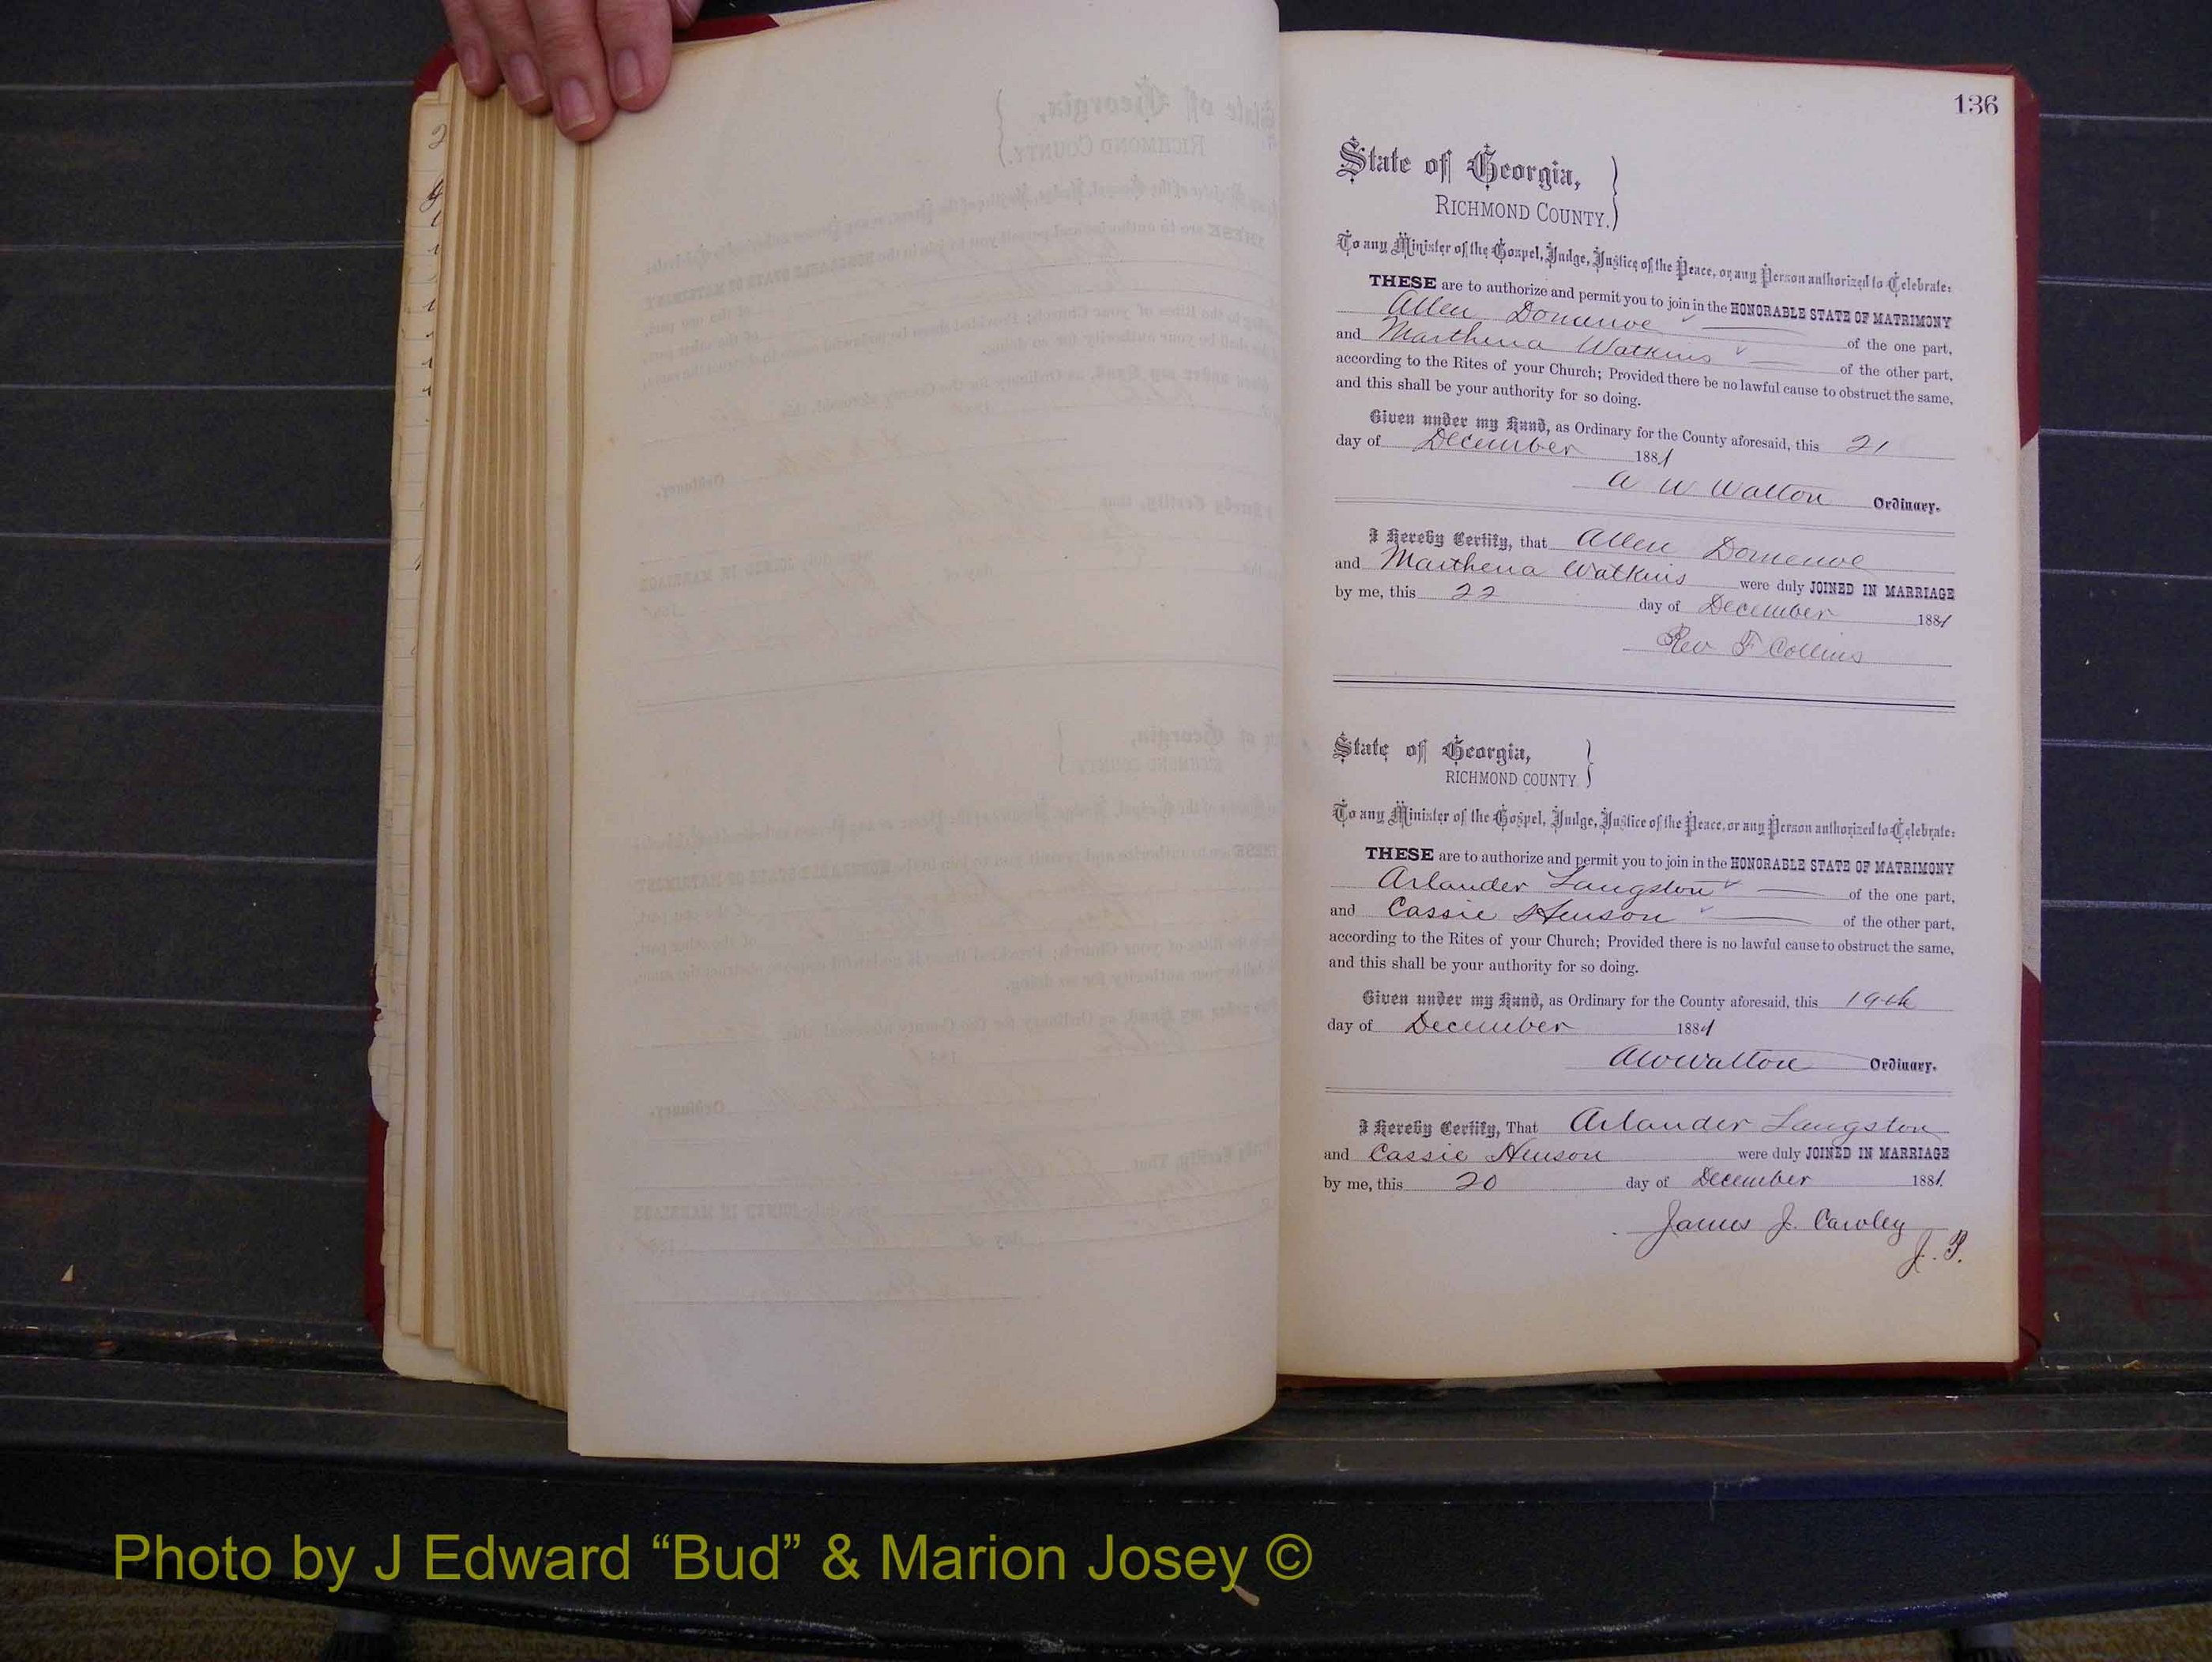 136
State of Georgia,
RICHMOND COUNTY.
To any Minister of the Gospel, Judge, Justice of the Peace, or any Person authorized to Celebrate:
THESE are to authorize and permit you to join in the HONORABLE STATE OF MATRIMONY
Allen Domenoe of the one part,
and Marthena Watkins of the other part,
according to the Rites of your Church; Provided there be no lawful cause to obstruct the same,
and this shall be your authority for so doing.
Given under my Hand, as Ordinary for the County aforesaid, this 21
day of December 1881
A W Walton Ordinary.
I Hereby Certify, that Allen Domenoe
and Marthena Watkins were duly JOINED IN MARRIAGE
by me, this 22 day of December 1881
Rev F Collins
State of Georgia,
RICHMOND COUNTY
To any Minister of the Gospel, Judge, Justice of the Peace, or any Person authorized to Celebrate:
THESE are to authorize and permit you to join in the HONORABLE STATE OF MATRIMONY
Arlander Langston of the one part,
and Cassie Henson of the other part,
according to the Rites of your Church; Provided there is no lawful cause to obstruct the same,
and this shall be your authority for so doing.
Given under my Hand, as Ordinary for the County aforesaid, this 19th
day of December 1881
A W Walton Ordinary.
I Hereby Certify, That Arlander Langston
and Cassie Henson were duly JOINED IN MARRIAGE
by me, this 20 day of December 1881
James J. Cawley
J. P.
Photo by J Edward “Bud” & Marion Josey ©